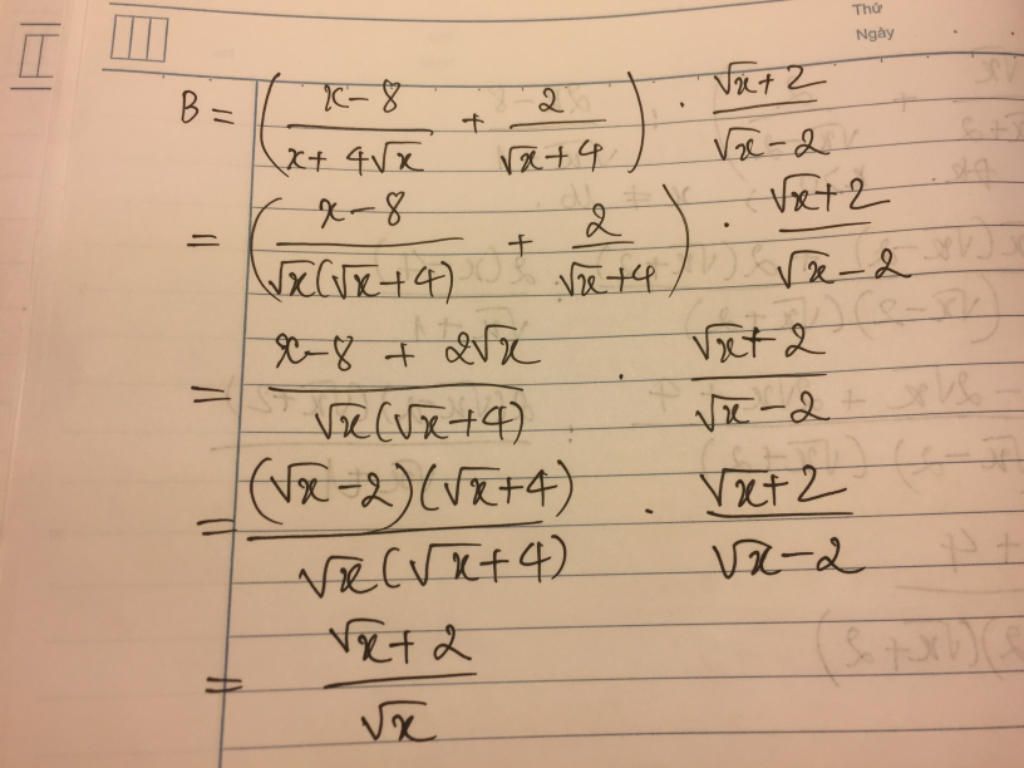 Thứ
Ngày
B = ( (x - 8)/(x + 4√x) + 2/(√x + 4) ) . (√x + 2)/(√x - 2)
= ( (x - 8)/(√x(√x + 4)) + 2/(√x + 4) ) . (√x + 2)/(√x - 2)
= (x - 8 + 2√x)/(√x(√x + 4)) . (√x + 2)/(√x - 2)
= ((√x - 2)(√x + 4))/(√x(√x + 4)) . (√x + 2)/(√x - 2)
= (√x + 2)/√x